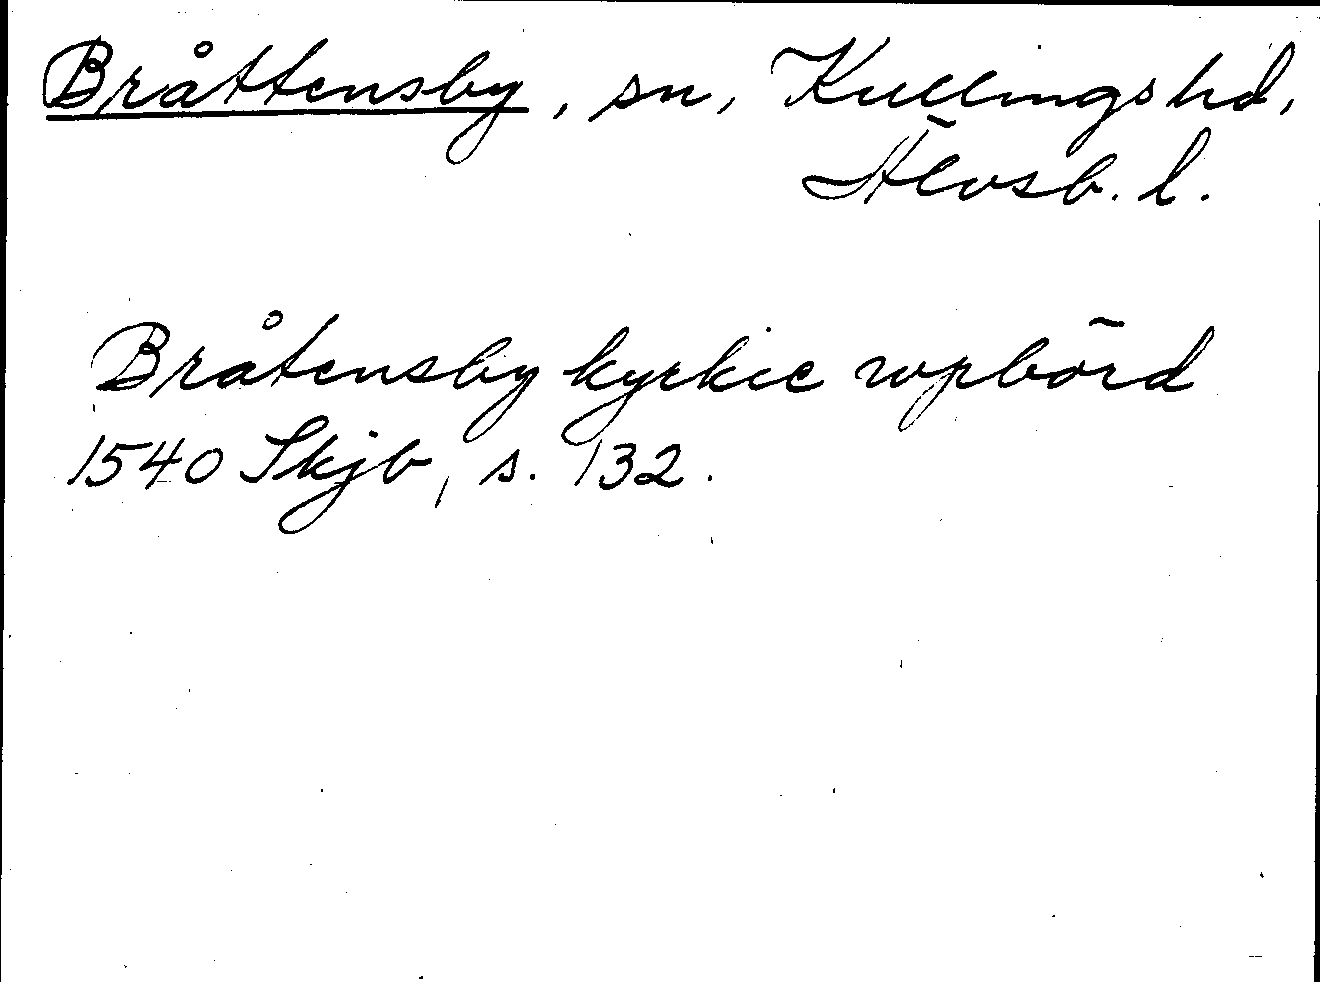 Bråttensby, sn, Kullings hd,
Älvsb. l.
Bråtensby kyrkie wpbörd
1540 Skjb, s. 132.